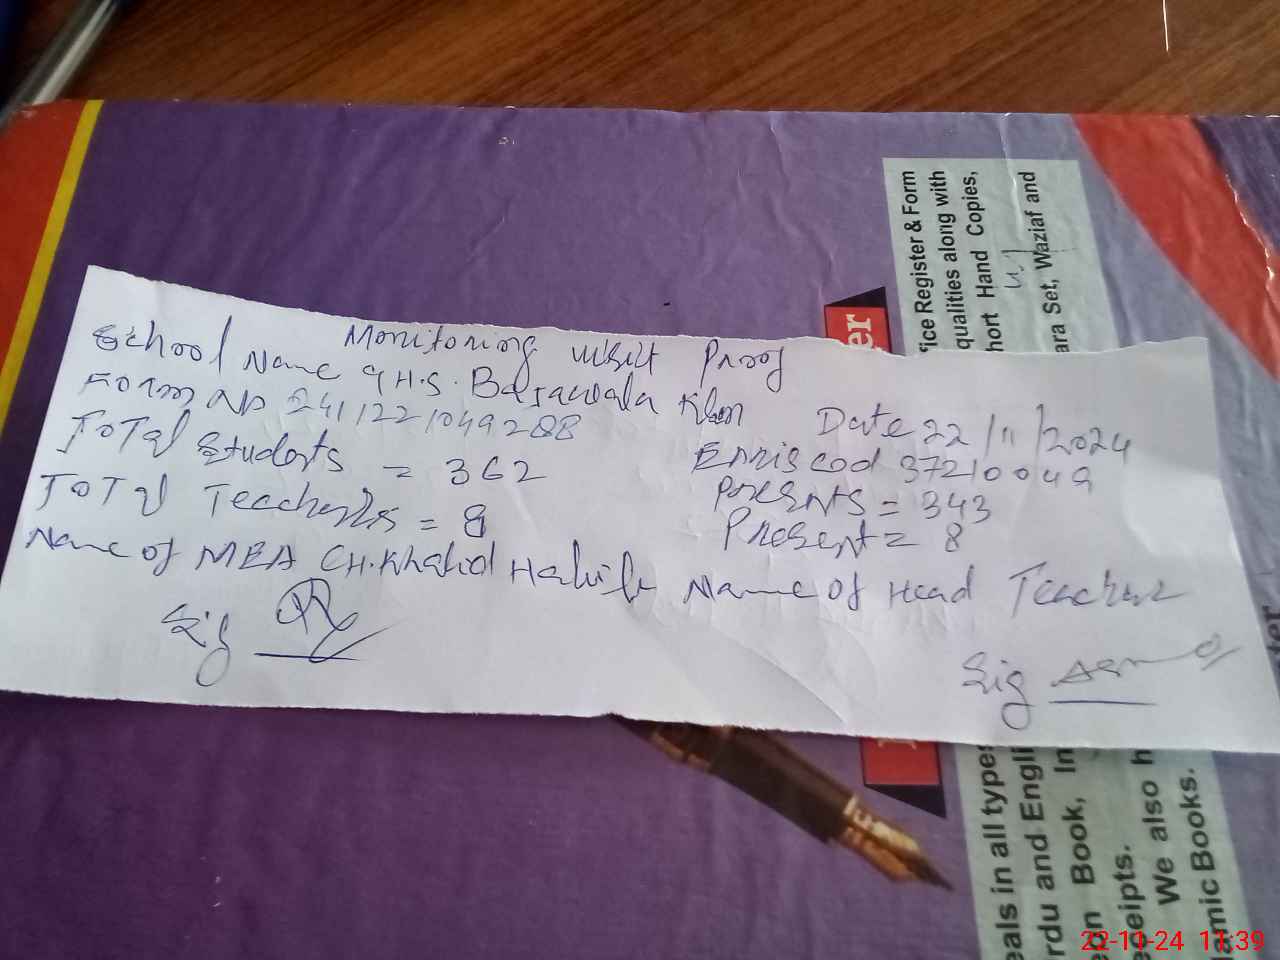 Monitoring visit Proof
School Name G.H.S. Basawala Date 22/11/2024
Form No 2411221049288 Emis cod 37210049
Total Students = 362 Presents = 343
Total Teachers = 8 Present = 8
Name of MEA CH. Khalid Habib Name of Head Teacher
Sig Sig
fice Register & Form
qualities along with
hort Hand Copies,
ara Set, Waziaf and
er
eals in all types
rdu and Engli
on Book, In
eceipts.
We also h
lamic Books.
ter
22-11-24 11:39